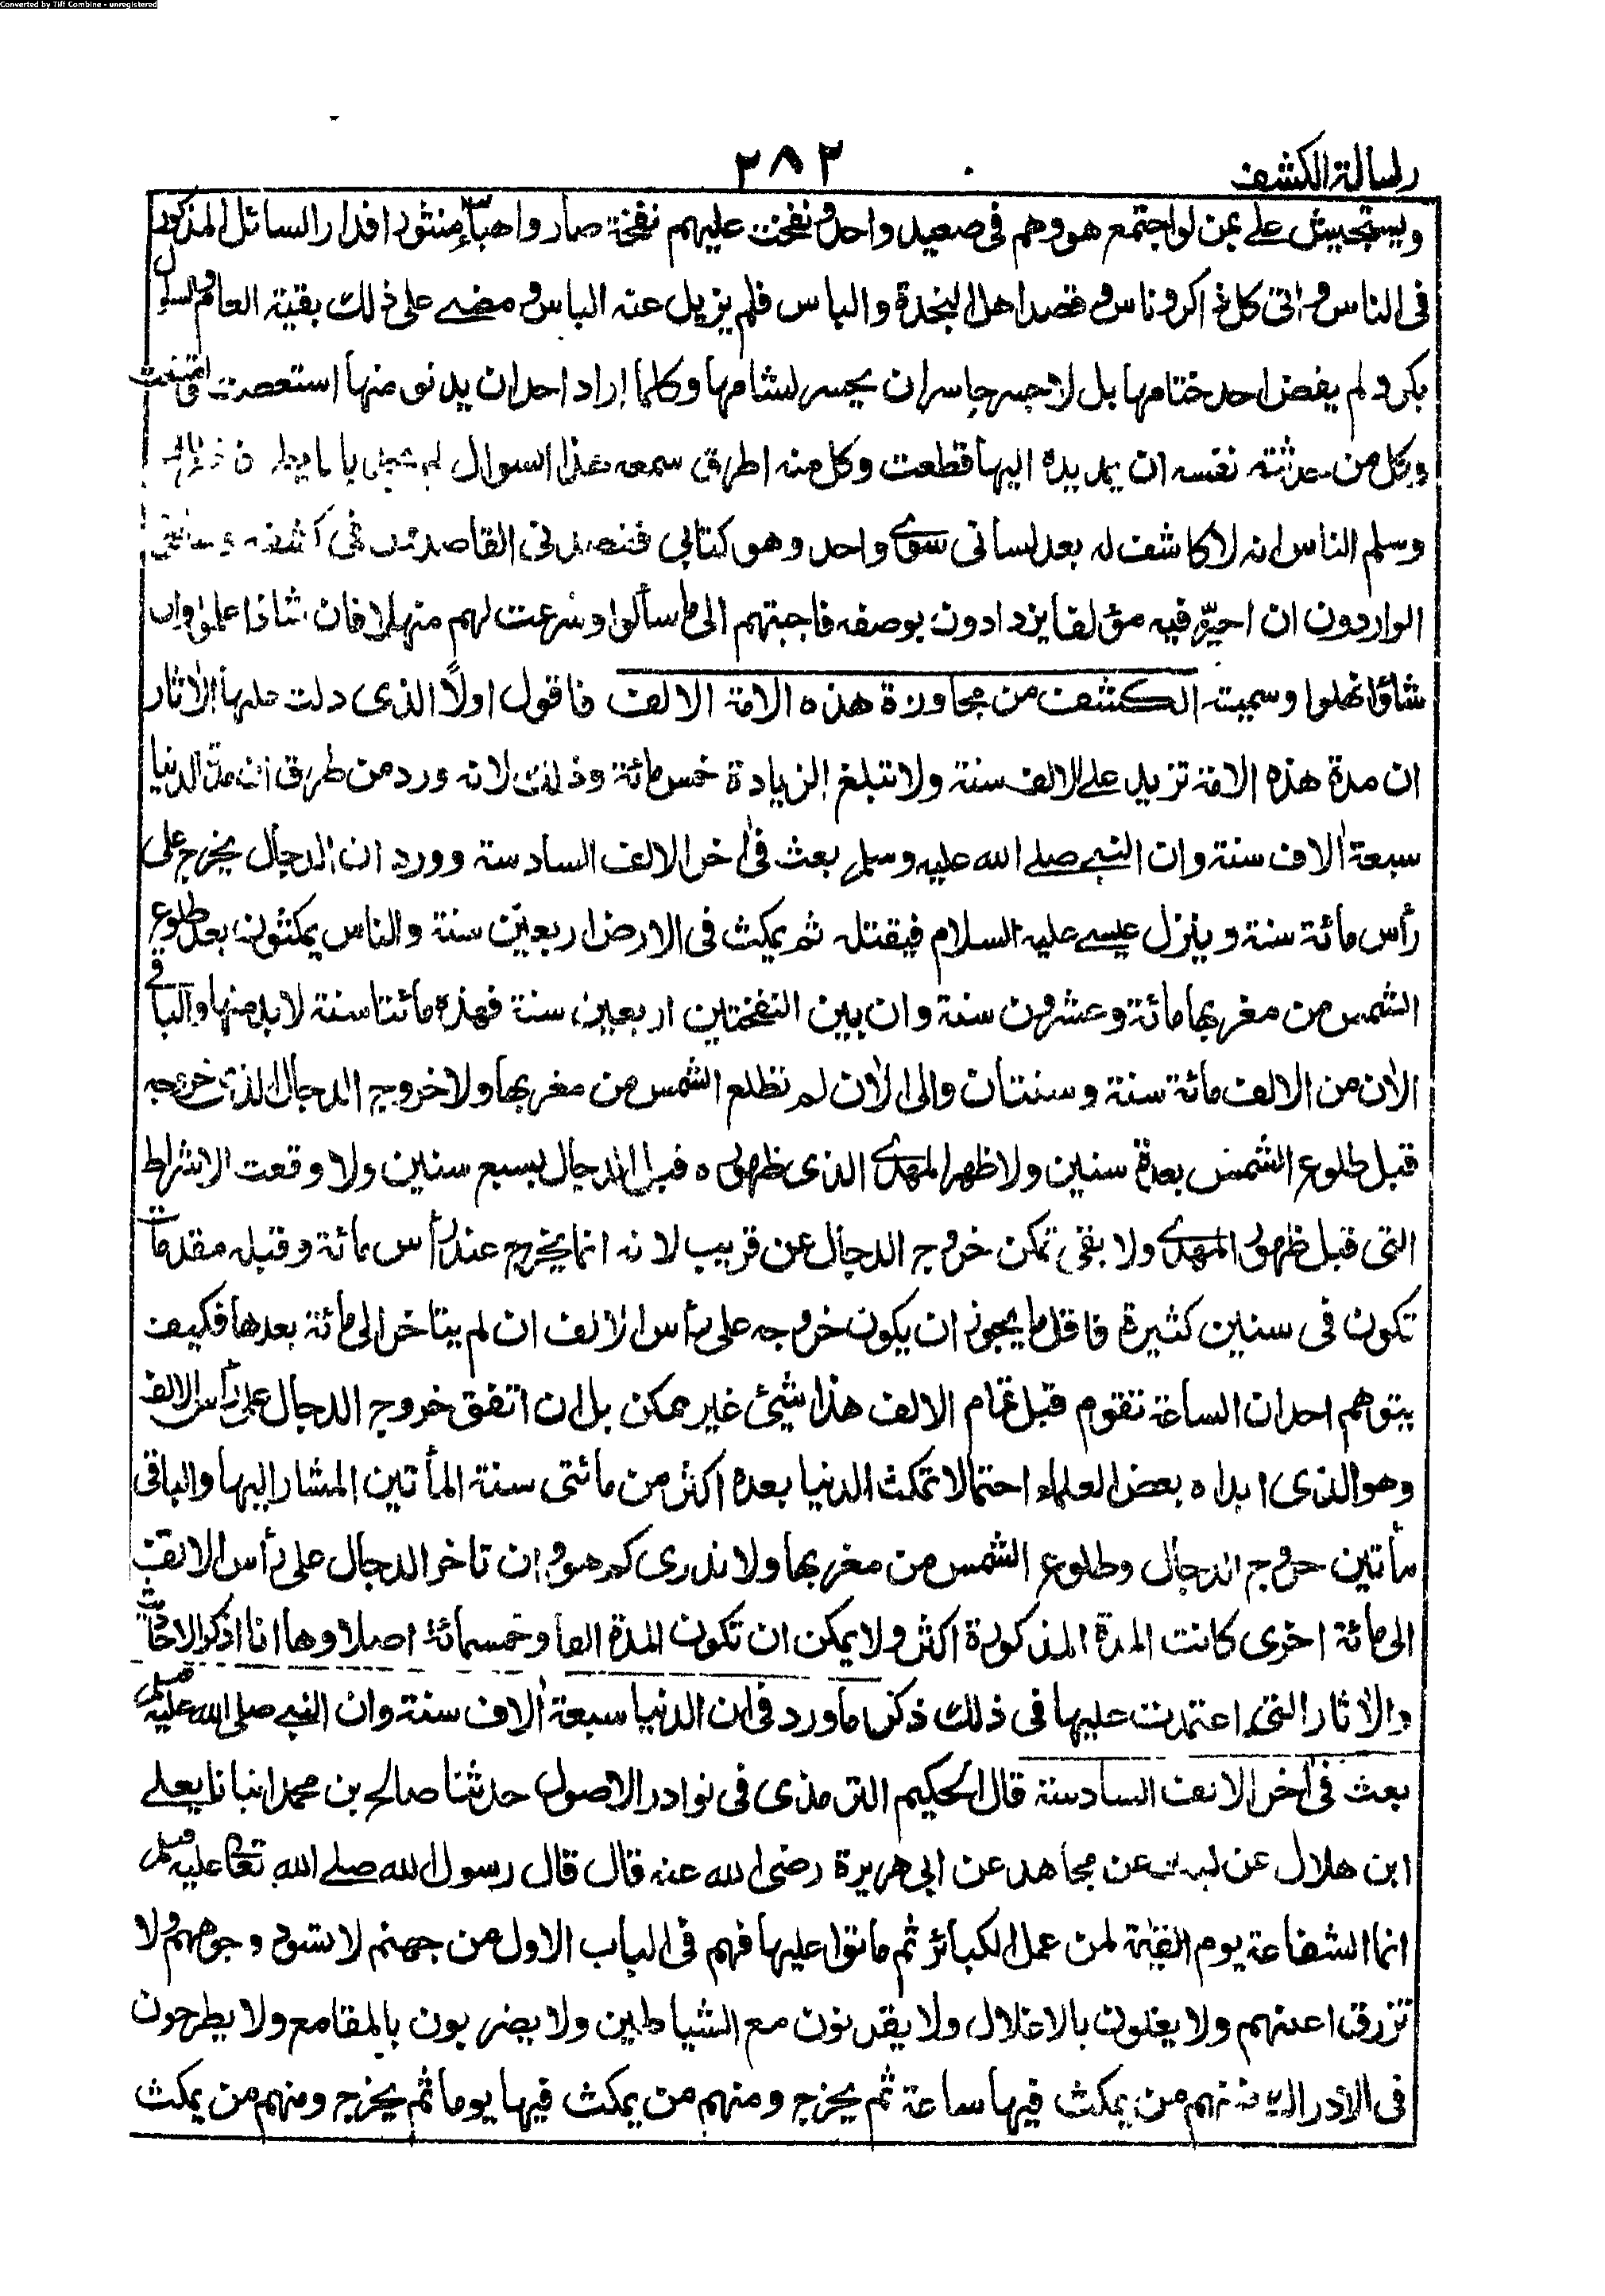 Converted by Tiff Combine - unregistered
رسالة الكشف
٢٨٢
ويستجيش على بمن لو اجتمع هو وهم فى صعيد واحد ونفخت عليهم نفخة صار واهباء منثورا فدار السائل المذكور
فى الناس و اتى كل ذاكر وناس و قصد اهل النجدة والباس فلم يزيل عنه الباس و مضى على ذلك بقية العام والسوال
بكر و لم يفض احد ختامها بل لا جسر جاسر ان يحسر لشامها وكلما اراد احد ان يدنو منها استعصت وامتنعت
وكل من حدثته نفسه ان يمد يده اليها قطعت وكل منه اطرق سمعه هذا السوال لم
وسلم الناس انه لا كاشف له بعد لسانى سوى واحد وهو كتابى فقصدنى القاصدون فى كشفه
الواردون ان احبر فيه مؤلفا يزدادون بوصفه فاجبتهم الى ما سألوا وشرعت لهم منهلا فان شاؤا علوا وان
شاؤا نهلوا وسميته الكشف من مجاوزة هذه الامة الالف فاقول اولا الذى دلت عليها الاثار
ان مدة هذه الامة تزيد على الالف سنة ولا تبلغ الزيادة خمس مائة وذلك لانه ورد من طرق ان مدة الدنيا
سبعة الاف سنة وان النبى صلى الله عليه وسلم بعث فى اخر الالف السادسة وورد ان الدجال يخرج على
رأس مائة سنة وينزل عيسى عليه السلام فيقتله ثم يمكث فى الارض اربعين سنة والناس يمكثون بعد طلوع
الشمس من مغربها مائة وعشرون سنة وان بين النفختين اربعين سنة فهذه مائتا سنة لابد منها والباقى
الان من الالف مائة سنة وسنتان والى الان لم تطلع الشمس من مغربها ولا خروج الدجال الذى خروجه
قبل طلوع الشمس بعدة سنين ولا ظهر المهدى الذى ظهوره قبل الدجال بسبع سنين ولا وقعت الاشراط
التى قبل ظهور المهدى ولا بقى تمكن خروج الدجال عن قريب لانه انما يخرج عند رأس مائة وقبله مقدمات
تكون فى سنين كثيرة فاقل ما يجوز ان يكون خروجه على رأس الالف ان لم يتاخر الى مائة بعدها فكيف
يتوهم احد ان الساعة تقوم قبل تمام الالف هذا شيئ غير ممكن بل ان اتفق خروج الدجال على رأس الالف
وهو الذى ابداه بعض العلماء احتمالا تمكث الدنيا بعده اكثر من مائتى سنة المأتين المشار اليها والباقى
مأتين خروج الدجال وطلوع الشمس من مغربها ولا ندرى كم هو وان تاخر الدجال على رأس الالف
الى مائة اخرى كانت المدة المذكورة اكثر ولا يمكن ان تكون المدة الفا وخمسمائة اصلا وها انا اذكر الاحاديث
والاثار التى اعتمدت عليها فى ذلك ذكر ما ورد فى ان الدنيا سبعة الاف سنة وان النبى صلى الله عليه وسلم
بعث فى اخر الالف السادسة قال الحكيم الترمذى فى نوادر الاصول حدثنا صالح بن محمد انبانا يعلى
ابن هلال عن ليث عن مجاهد عن ابى هريرة رضى الله عنه قال قال رسول الله صلى الله تعالى عليه وسلم
انما الشفاعة يوم القيمة لمن عمل الكبائر ثم ماتوا عليها فهم فى الباب الاول من جهنم لا تسود وجوههم ولا
تزرق اعينهم ولا يغلون بالاغلال ولا يقرنون مع الشياطين ولا يضربون بالمقامع ولا يطرحون
فى الادراك منهم من يمكث فيها ساعة ثم يخرج ومنهم من يمكث فيها يوما ثم يخرج ومنهم من يمكث